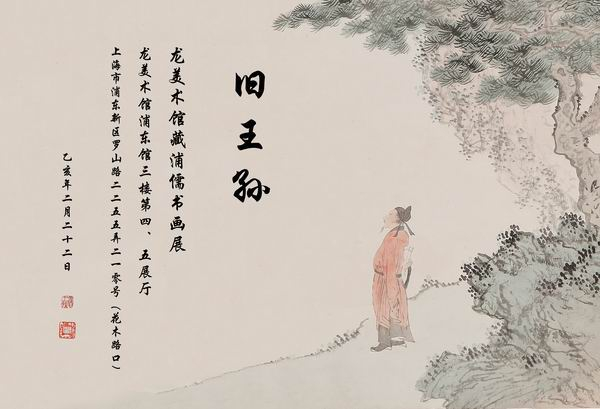 旧王孙
龙美术馆藏浦儒书画展
龙美术馆浦东馆三楼第四、五展厅
上海市浦东新区罗山路二二五五弄二一零号（花木路口）
乙亥年二月二十二日